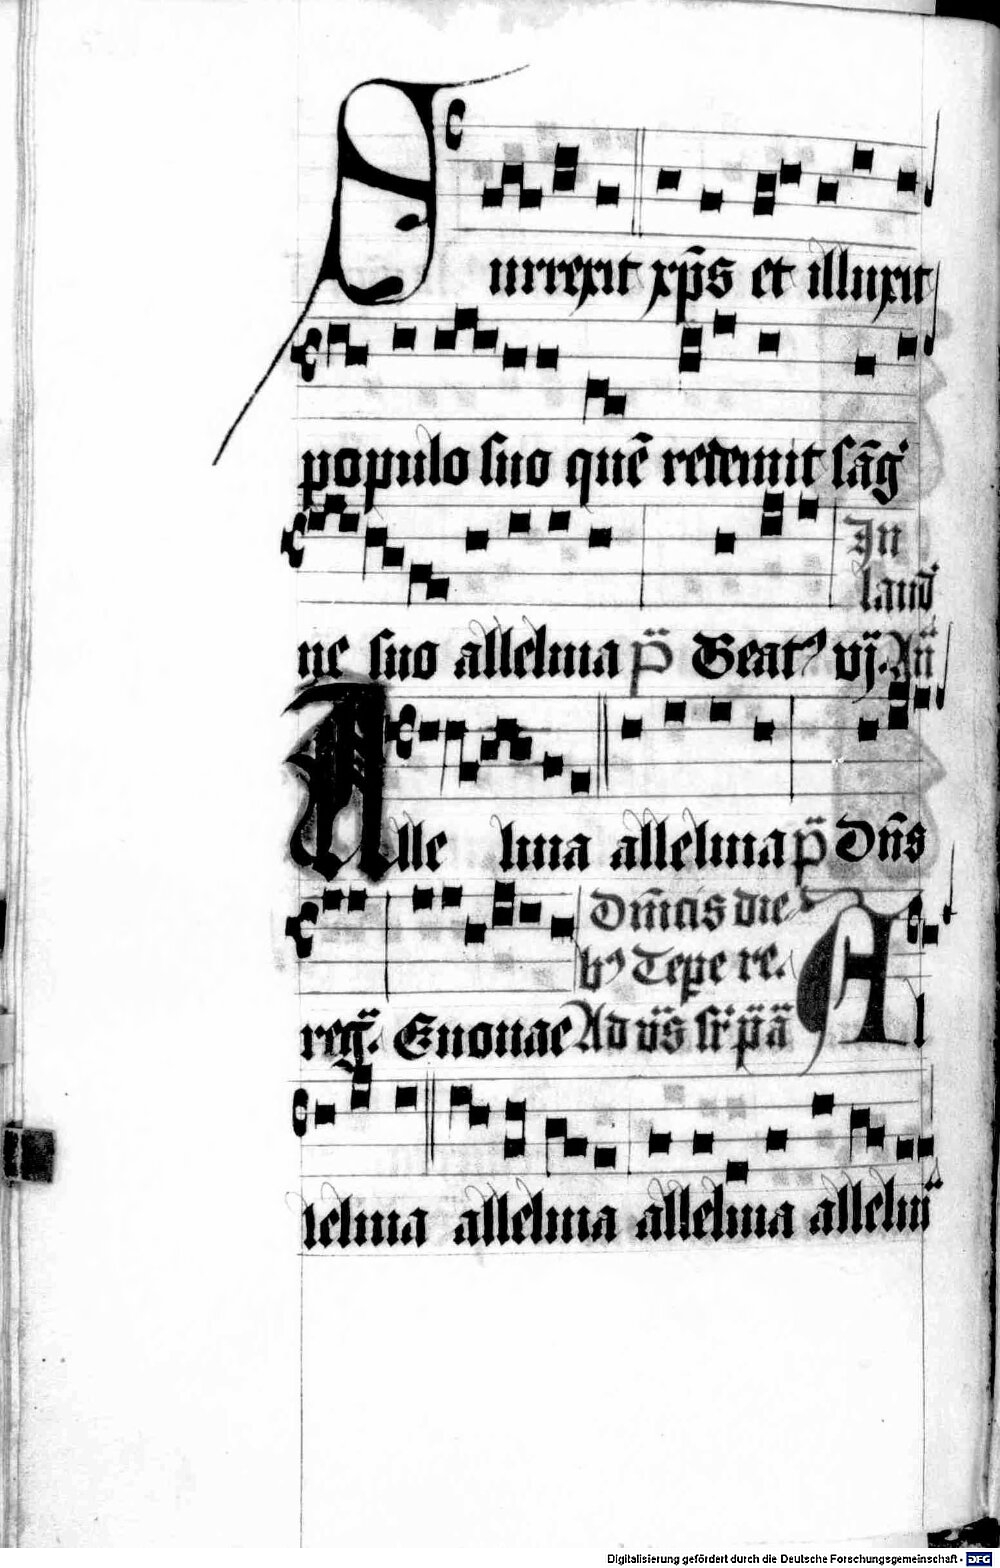 Surrexit xp̄s et illuxit
populo suo quē redemit sāg
ne suo alleluia p̄ Beatꝰ vj. An̄
In
laud
Alleluia alleluia p̄ Dn̄s
Dn̄icis die
bꝰ Tꝑe re.
reg. Euouae Ad vs̄ sr̄ p̄a Al
leluia alleluia alleluia allelui
Digitalisierung gefördert durch die Deutsche Forschungsgemeinschaft - DFG